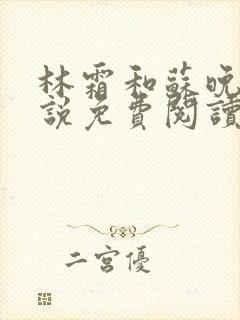 林霜和蘇晚
說免費閱讀
二宮優